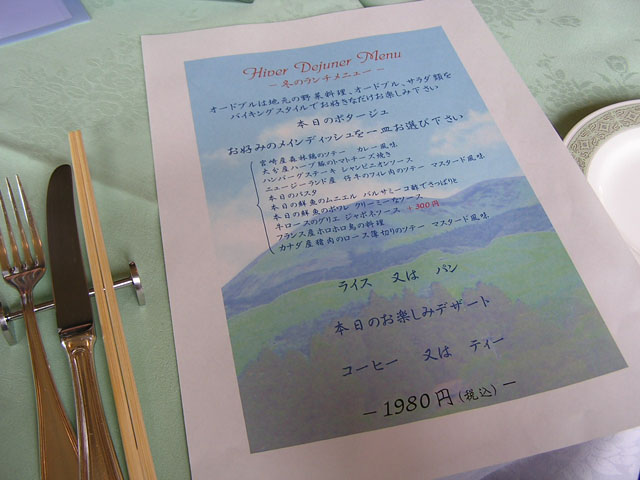 Hiver Dejuner Menu
－ 冬のランチメニュー －
オードブルは地元の野菜料理、オードブル、サラダ類を
バイキングスタイルでお好きなだけお楽しみ下さい
本日のポタージュ
お好みのメインディッシュを一皿お選び下さい
宮崎産森林鶏のソテー カレー風味
大分産ハーブ豚のトマトチーズ焼き
ハンバーグステーキ シャンピニオンソース
ニュージーランド産 仔牛のフィレ肉のソテー マスタード風味
本日のパスタ
本日の鮮魚のムニエル バルサミコ酢でさっぱりと
本日の鮮魚のポワレ クリーミーなソース
牛ロースのグリエ ジャポネソース +300円
フランス産ホロホロ鳥の料理
カナダ産猪肉のロース薄切りのソテー マスタード風味
ライス 又は パン
本日のお楽しみデザート
コーヒー 又は ティー
－ 1980円 (税込) －